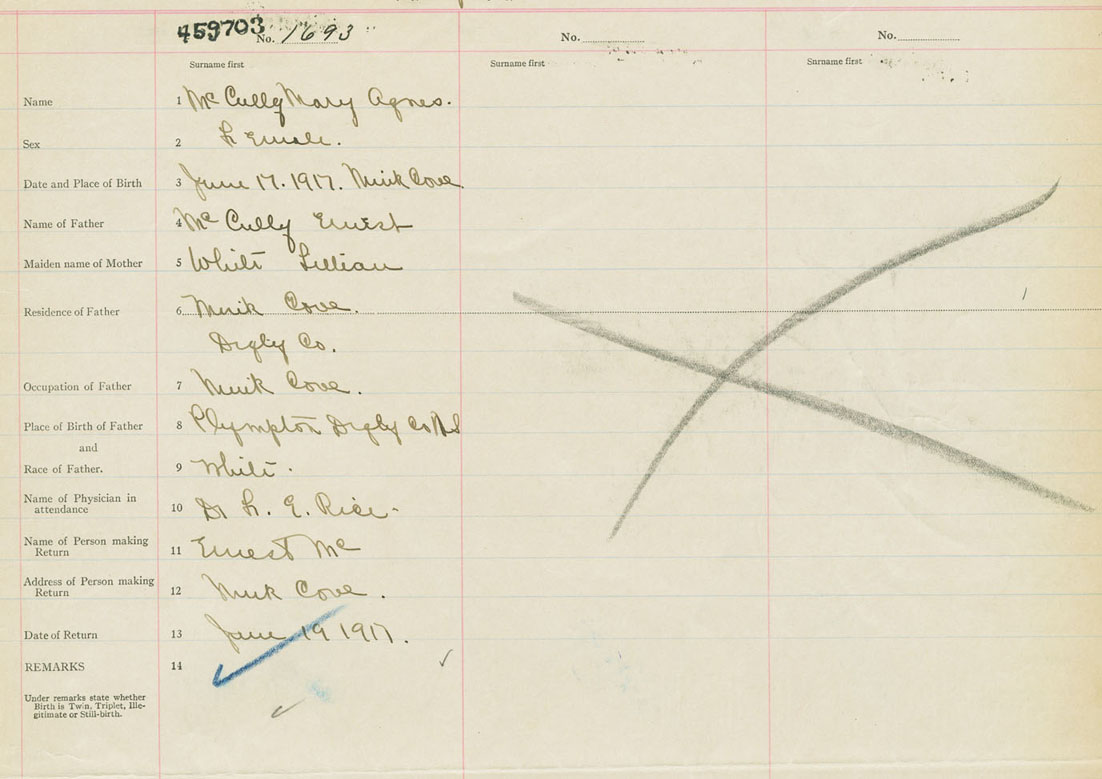 459703 No. 1693
No.
No.
Surname first
Surname first
Surname first
Name 1 Mc Cully Mary Agnes.
Sex 2 Female.
Date and Place of Birth 3 June 17. 1917. Mink Cove
Name of Father 4 Mc Cully Ernest
Maiden name of Mother 5 White Lillian
Residence of Father 6 Mink Cove.
Digby Co.
Occupation of Father 7 Mink Cove.
Place of Birth of Father 8 Plympton Digby Co NS
and
Race of Father. 9 White.
Name of Physician in
attendance 10 Dr F. E. Rice.
Name of Person making
Return 11 Ernest Mc
Address of Person making
Return 12 Mink Cove.
Date of Return 13 June 19 1917.
REMARKS 14
Under remarks state whether
Birth is Twin, Triplet, Ille-
gitimate or Still-birth.